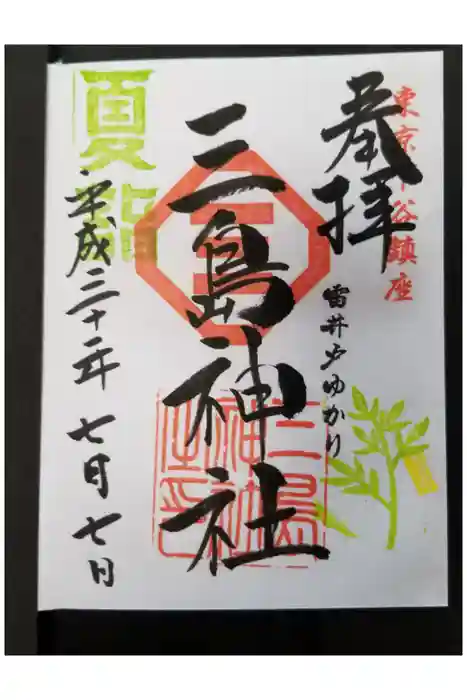 東京下谷鎮座
奉拝
雷井戸ゆかり
三島神社
三島神社之印
夏詣
平成三十年 七月七日